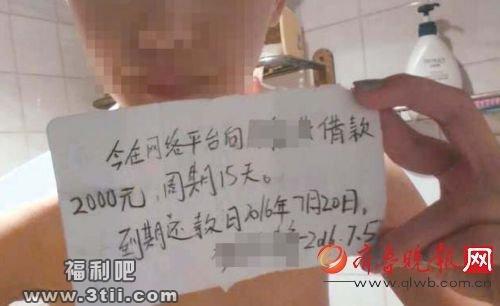 今在网络平台向 借款
2000元，周期15天。
到期还款日2016年7月20日。
-2016.7.5
福利吧
www.3tii.com
齐鲁晚报网
www.qlwb.com.cn